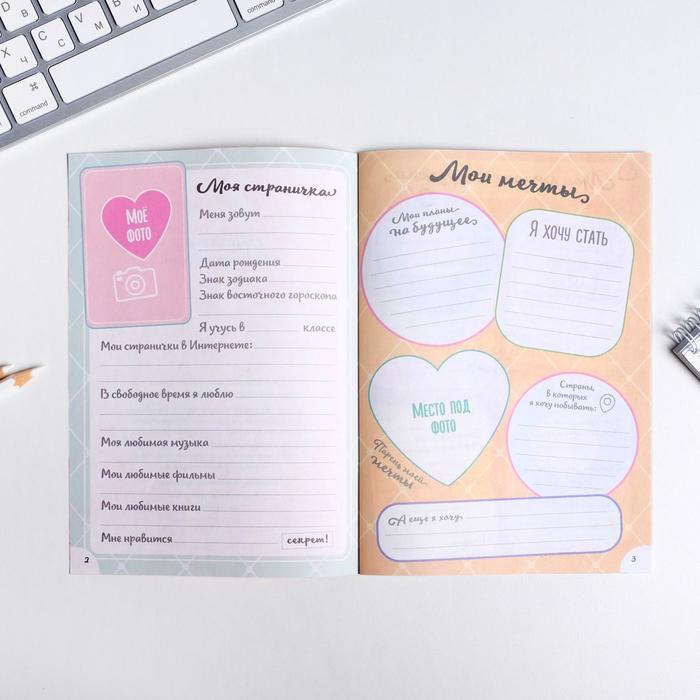 command
command
Моё
фото
Моя страничка
Меня зовут
Дата рождения
Знак зодиака
Знак восточного гороскопа
Я учусь в классе
Мои странички в Интернете:
В свободное время я люблю
Моя любимая музыка
Мои любимые фильмы
Мои любимые книги
Мне нравится секрет!
2
Мои мечты
Мои планы
на будущее
Я хочу стать
Место под
фото
Парень моей
мечты
Страны,
в которых
я хочу побывать:
А еще я хочу
3